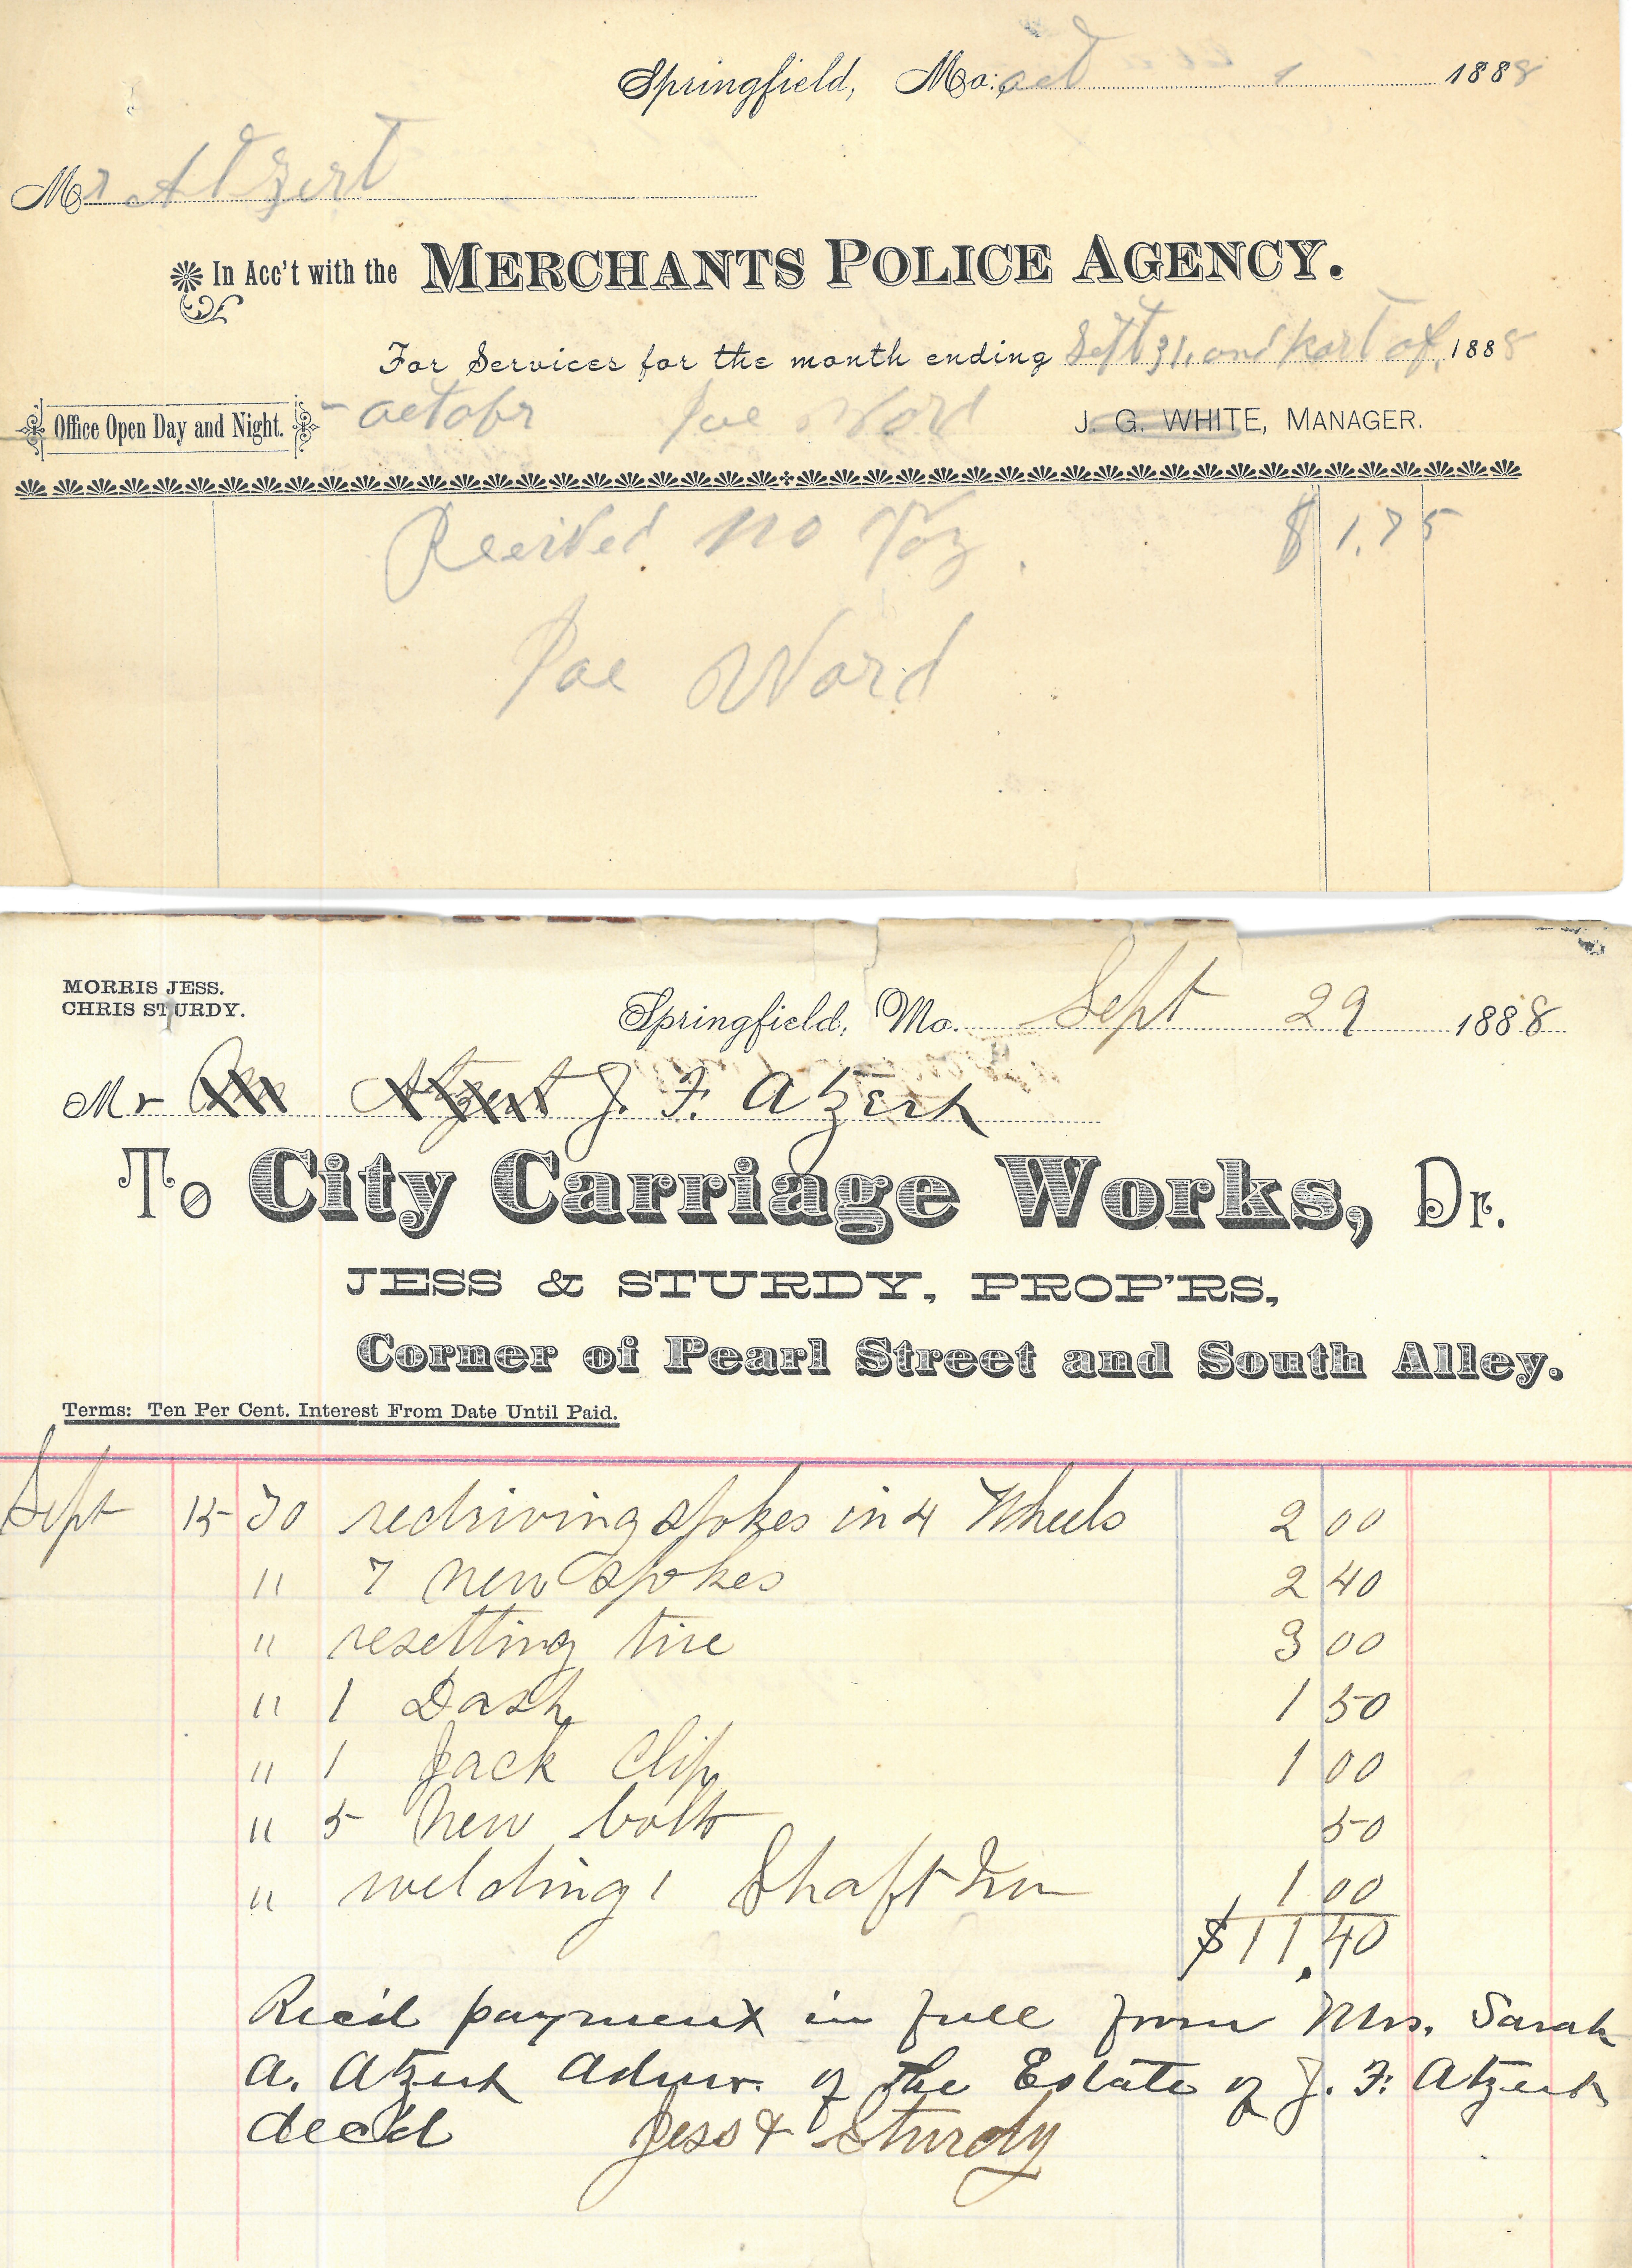 Springfield, Mo. Oct 1 1888
Mr Atzert
In Acc't with the MERCHANTS POLICE AGENCY.
For Services for the month ending Sept 31, and part of, 1888
Office Open Day and Night. - octobr Joe Word J. G. WHITE, MANAGER.
$ 1.75
Joe Word
MORRIS JESS.
CHRIS STURDY.
Springfield, Mo. Sept 29 1888
Mr Atzert J. F. Atzert
To City Carriage Works, Dr.
JESS & STURDY, PROP'RS,
Corner of Pearl Street and South Alley.
Terms: Ten Per Cent. Interest From Date Until Paid.
Sept 15 To redriving spokes in 4 Wheels 2 00
" 7 new spokes 2 40
" resetting tire 3 00
" 1 Dash 1 50
" 1 Jack Clip 1 00
" 5 New bolts 50
" welding 1 Shaft Iron 1 00
$11.40
Rec'd payment in full from Mrs. Sarah
A. Atzert Admr. of the Estate of J. F. Atzert
dec'd Jess & Sturdy